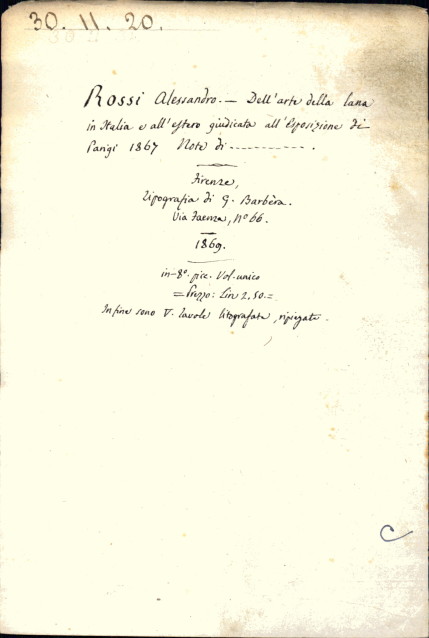 30. 11. 20.
Rossi Alessandro. — Dell'arte della lana
in Italia e all'estero giudicata all'Esposizione di
Parigi 1867 Note di ----------- .
Firenze,
Tipografia di G. Barbèra.
Via Faenza, Nº 66.
1869.
in-8º. picc. Vol. unico
= Prezzo: Lire 2,50. =
In fine sono V. tavole litografate, ripiegate.
C